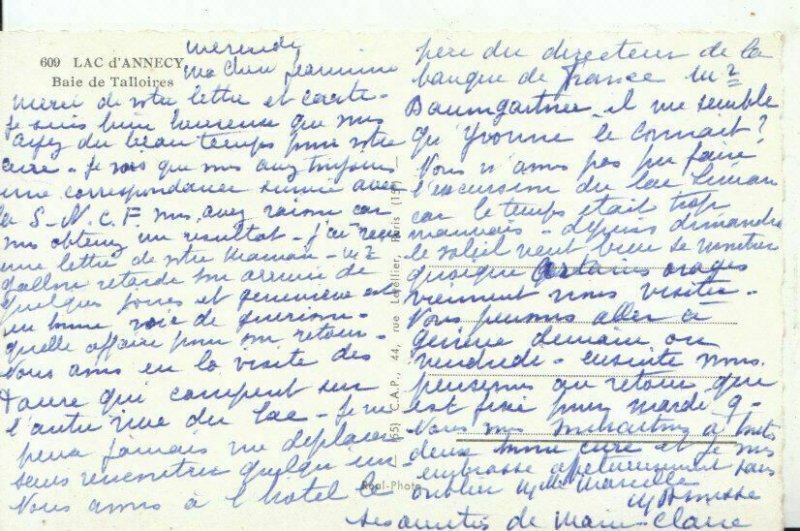 609 LAC d'ANNECY
Baie de Talloires
mercredi
Ma chère Jeannine
merci de votre lettre et carte -
je suis bien heureuse que vous
ayez du beau temps pour votre
cure - je vois que vous avez toujours
une correspondance suivie avec
la S-N.C.F. vous avez raison car
vous obtenez un résultat - j'ai reçu
une lettre de votre Maman - Mr
Gallon retarde son arrivée de
quelques jours et Geneviève est
en bonne voie de guérison -
quelle affaire pour son retour -
Nous avons eu la visite des
Faure qui campent sur
l'autre rive du lac - je ne
peux jamais me déplacer
sans rencontrer quelqu'un -
Nous avons à l'hôtel le
père du directeur de la
banque de France Mr
Baumgartner - il me semble
qu'Yvonne le connait ?
Nous n'avons pas pu faire
l'excursion du lac Léman
car le temps était trop
mauvais - depuis dimanche
le soleil veut bien se montrer
quoique certains orages
viennent nous visiter -
Nous pensons aller à
Genève demain ou
vendredi - ensuite nous
pensons au retour que
est fixé pour mardi 9 -
Nous vous souhaitons à toutes
deux bonne cure et je vous
embrasse affectueusement sans
oublier Mme Marcelle
Les amitiés de Marie-Claire
Real-Photo
(65) C.A.P., 44, rue Letellier, Paris (15e)